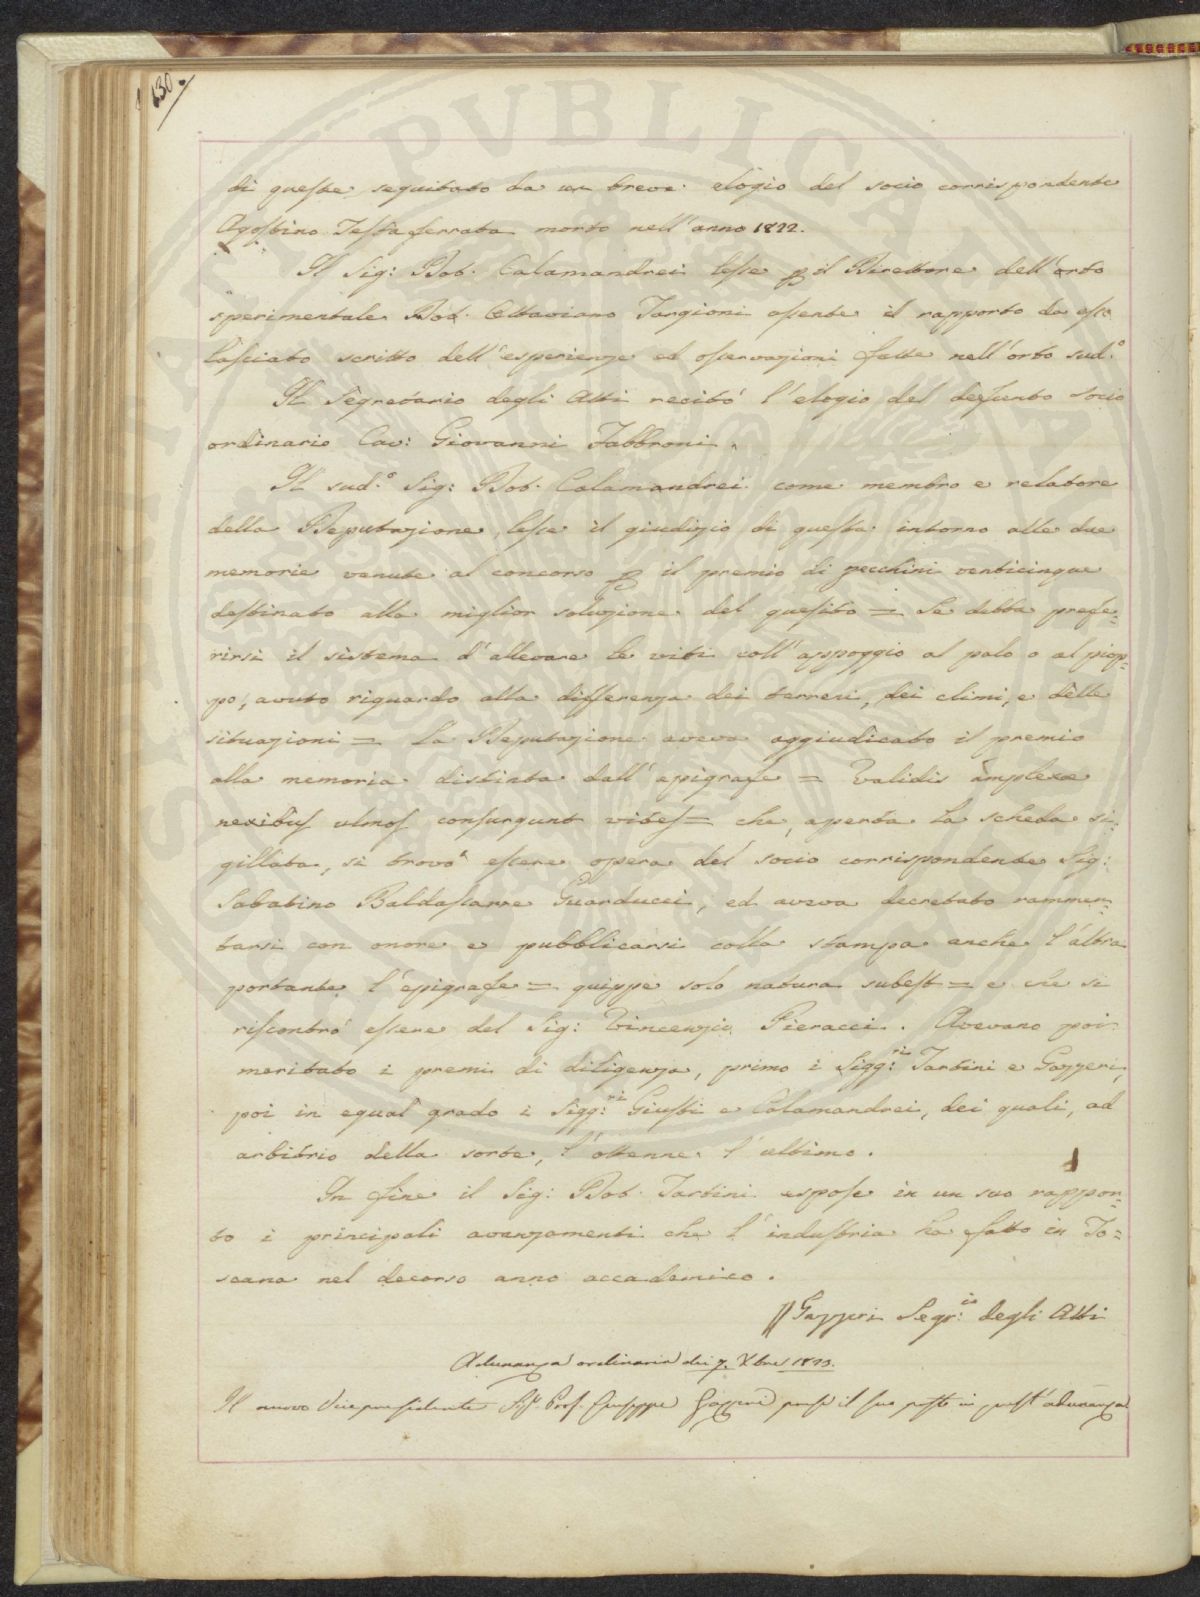 130.
di queste, seguitato da un breve elogio del socio corrispondente
Agostino Testaferrata morto nell'anno 1822.
Il Sig: Dot. Calamandrei lesse p il Direttore dell'orto
sperimentale Dot. Ottaviano Targioni assente il rapporto da esso
lasciato scritto dell'esperienze ed osservazioni fatte nell'orto sud.º
Il Segretario degli Atti recitò l'elogio del defunto socio
ordinario Cav: Giovanni Fabbroni.
Il sud.º Sig: Dot. Calamandrei come membro e relatore
della Deputazione, lesse il giudizio di questa intorno alle due
memorie venute al concorso p il premio di zecchini venticinque
destinato alla miglior soluzione del quesito = Se debba prefe=
rirsi il sistema d'allevare le viti coll'appoggio al palo o al piop=
po, avuto riguardo alla differenza dei terreni, dei climi, e delle
situazioni = La Deputazione aveva aggiudicato il premio
alla memoria distinta dall'epigrafe = Validis amplexæ
nexibus ulmos consurgunt vites = che, aperta la scheda si=
gillata, si trovò essere opera del socio corrispondente Sig:
Sabatino Baldassarre Guarducci, ed aveva decretato rammen=
tarsi con onore e pubblicarsi colla stampa anche l'altra
portante l'epigrafe = quippe solo natura subest = e che si
riscontrò essere del Sig: Vincenzio Pieracci. Avevano poi
meritato i premi di diligenza, primo i Sigg:ri Tartini e Gazzeri,
poi in egual grado i Sigg:ri Giusti e Calamandrei, dei quali, ad
arbitrio della sorte, l'ottenne l'ultimo.
In fine il Sig: Dot. Tartini espose in un suo rappor=
to i principali avanzamenti che l'industria ha fatto in To=
scana nel decorso anno accademico.
Gazzeri Segr:io degli Atti
Adunanza ordinaria dei 7. Xbre 1823.
Il nuovo Vicepresidente Sig. Prof. Giuseppe Gazzeri prese il suo posto in quest'adunanza